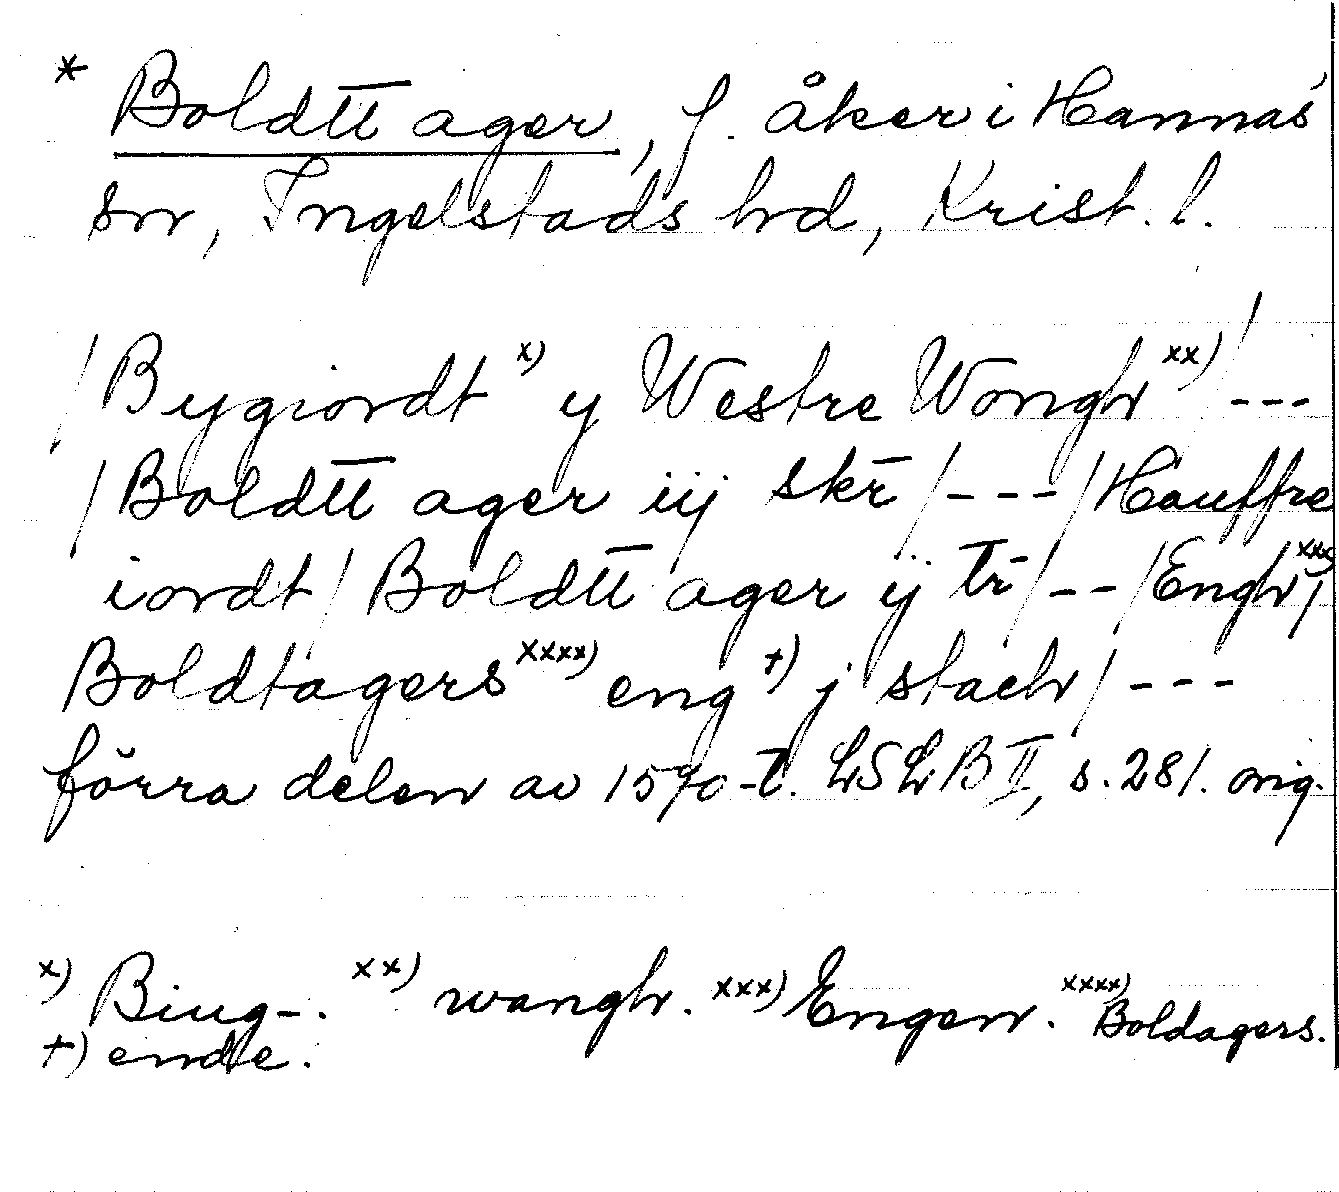 * Boldtt̅ ager, f. åker i Hannas
sn, Ingelstads hd, Krist. l.
/Bygiordt x) y Westre Wongh xx)/ ---
/Boldtt̅ ager iij skr̅/ --- /Hauffre
iordt/ Boldtt̅ ager ij tr̅/ -- /Engh xxx)/
Boldtagers xxxx) eng +) j stach/ ---
förra delen av 1570-t. LSLB II, s. 281. orig.
x) Biug-. xx) wangh. xxx) Engen. xxxx) Boldagers.
+) endte.